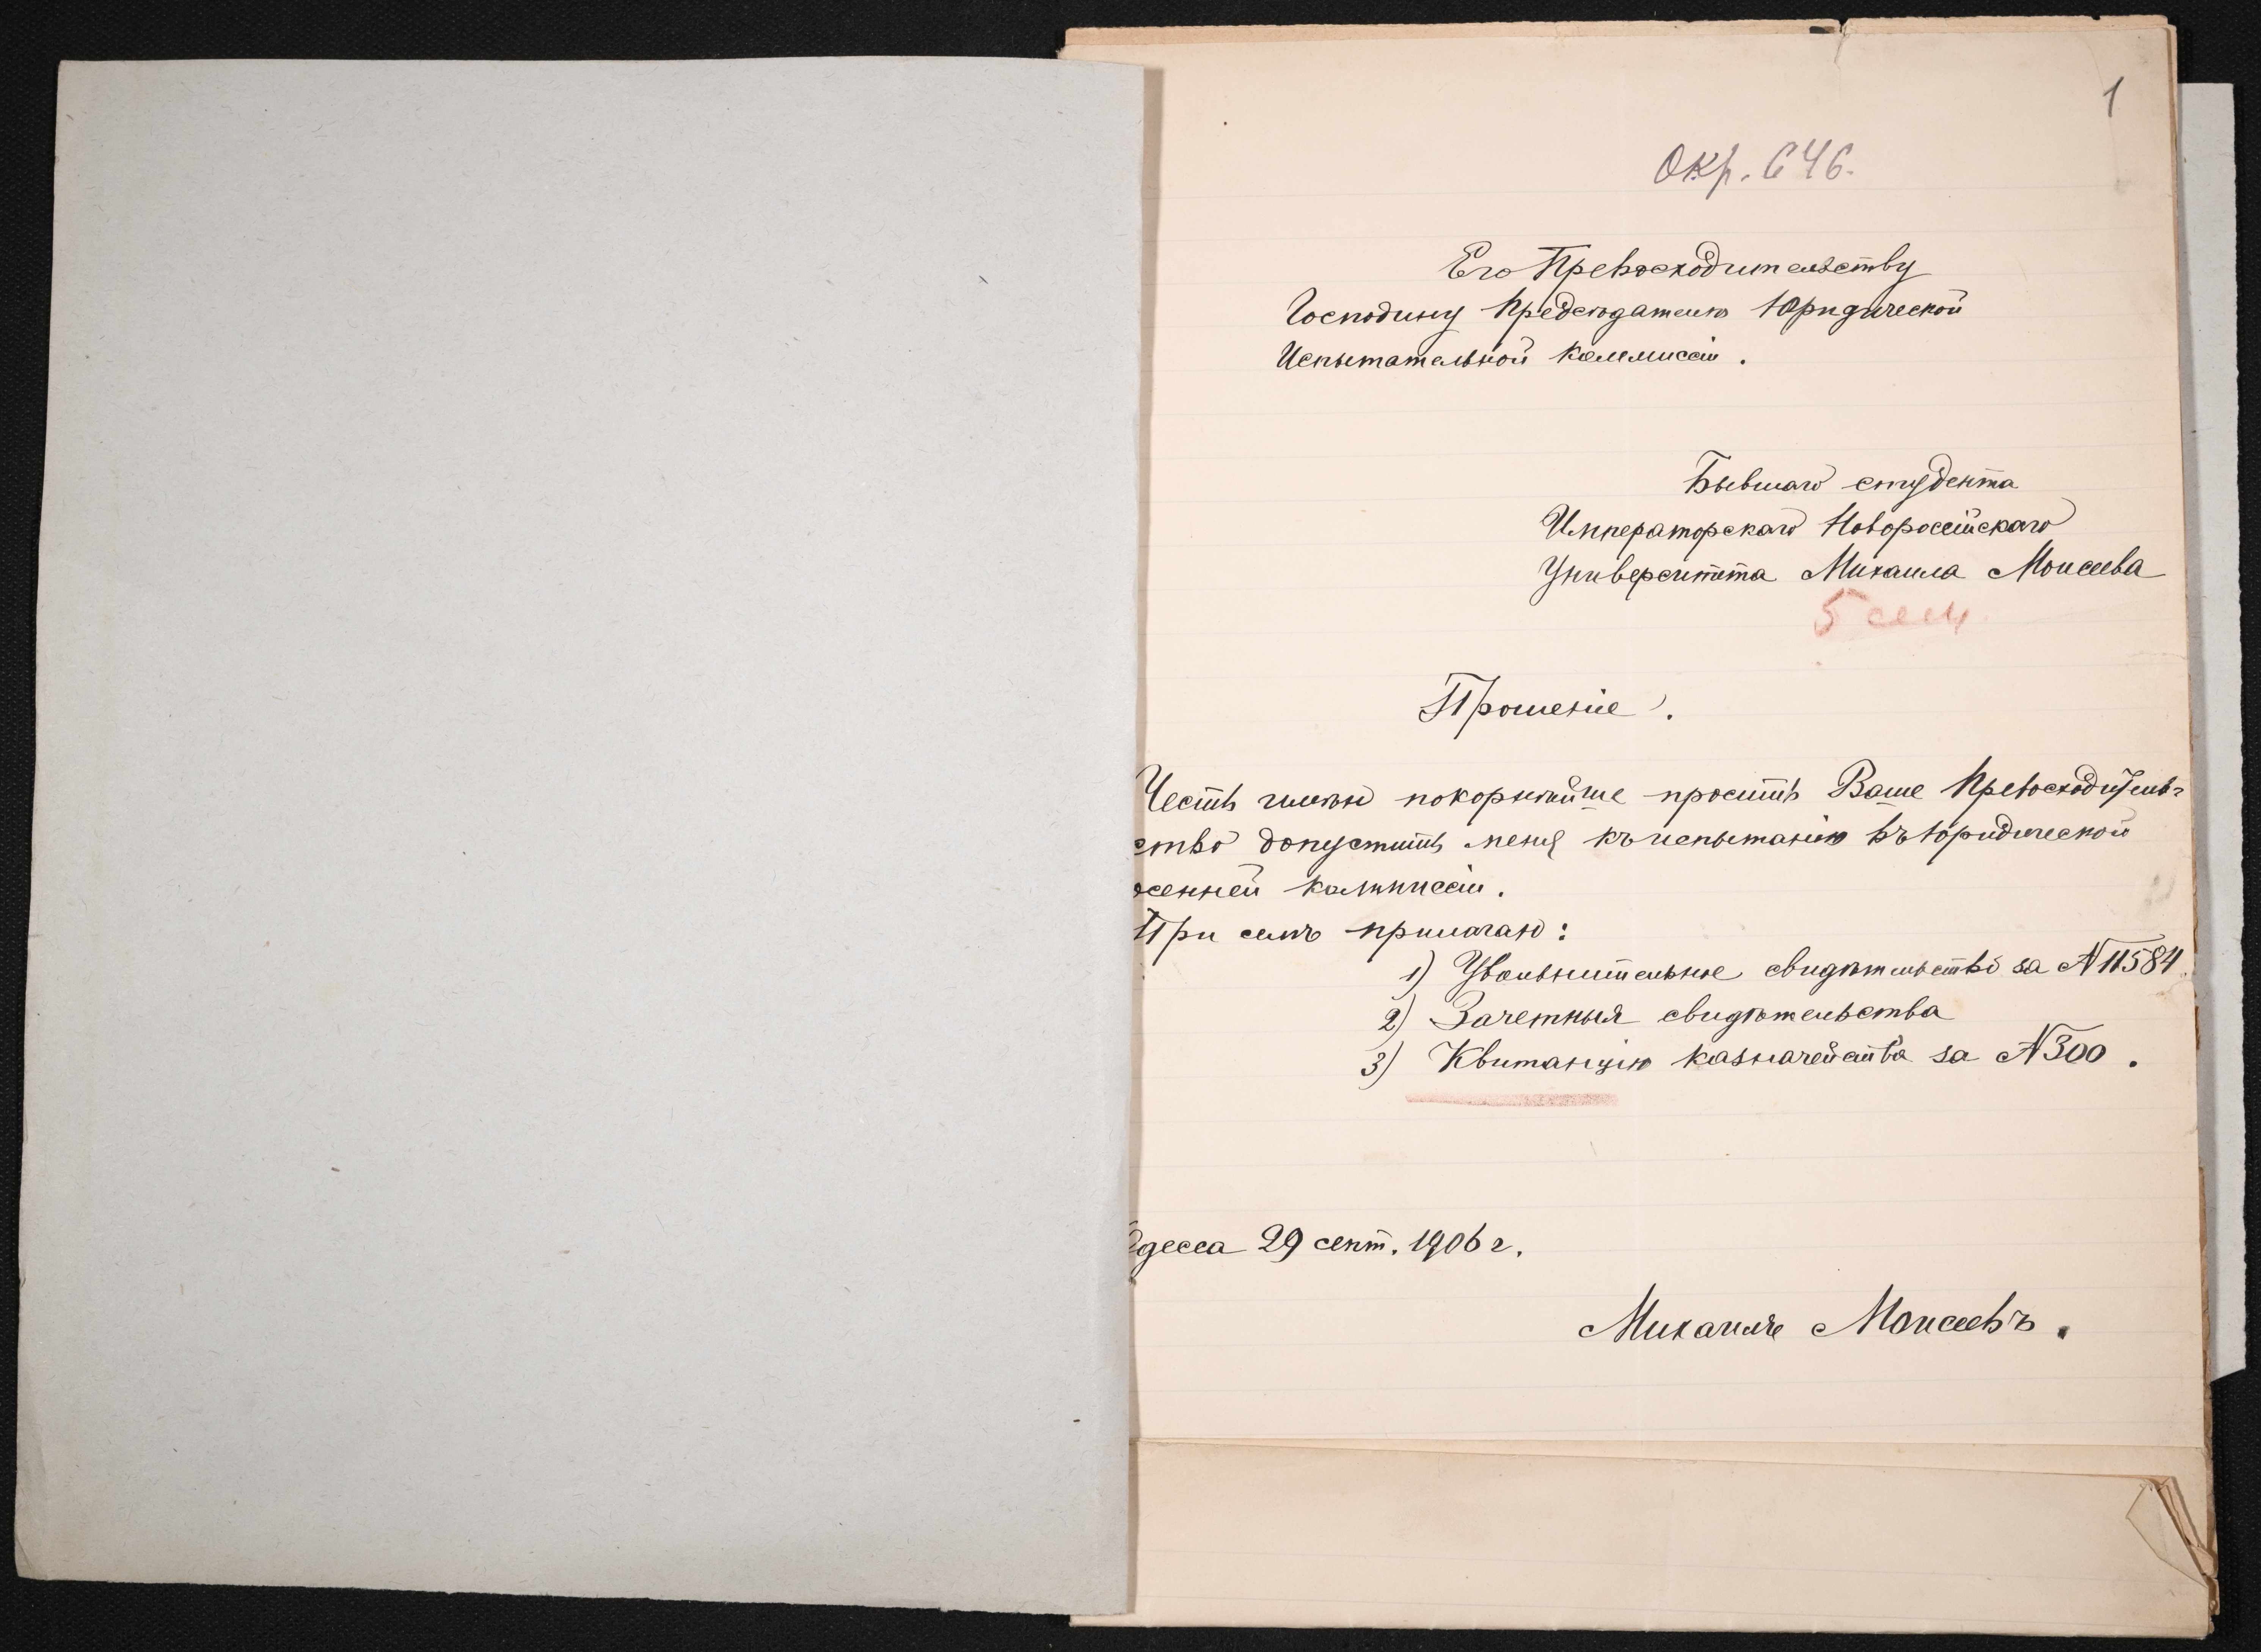 1
Окр. 646.
Его Превосходительству
Господину Предсѣдателю Юридической
Испытательной Коммиссіи.
Бывшаго студента
Императорскаго Новороссійскаго
Университета Михаила Моисеева
5 сем
Прошеніе.
Честь имѣю покорнѣйше просить Ваше Превосходитель-
ство допустить меня къ испытанію въ юридической
осенней коммиссіи.
При семъ прилагаю:
1) Увольнительное свидѣтельство за № 11584
2) Зачетныя свидѣтельства
3) Квитанцію казначейства за № 300.
Одесса 29 сент. 1906 г.
Михаилъ Моисеевъ.